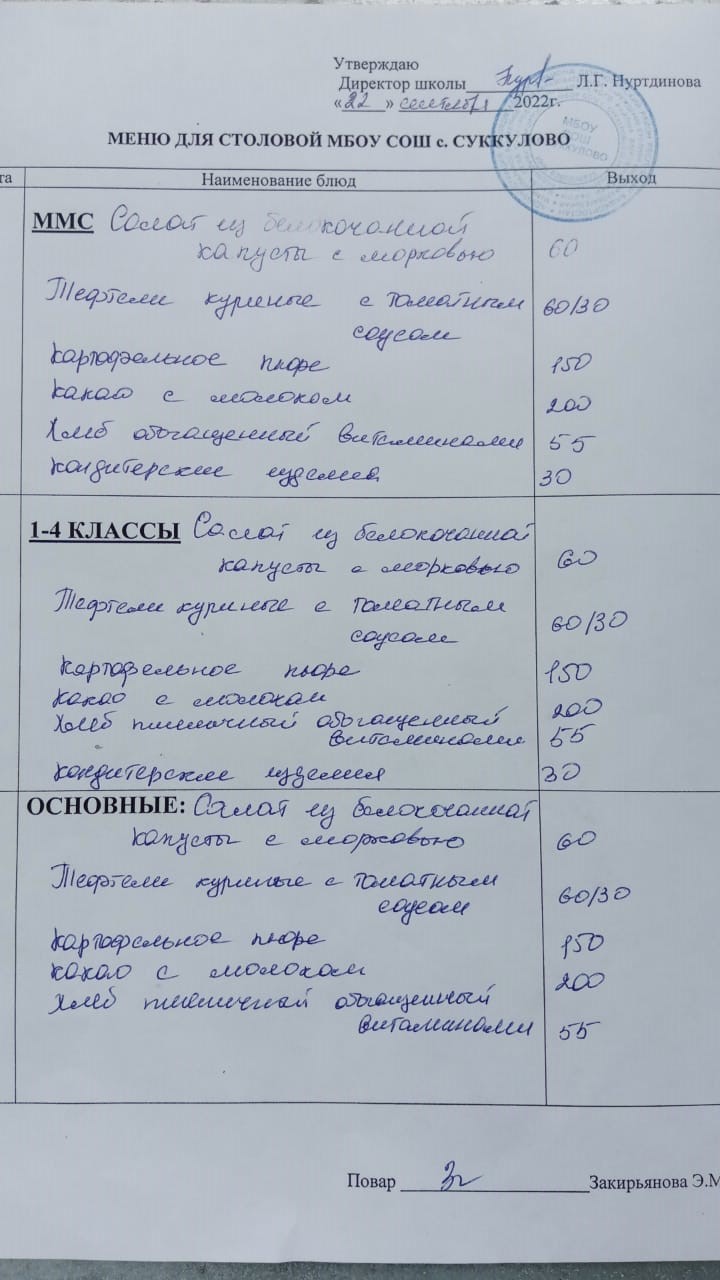 Утверждаю
Директор школы Л.Г. Нуртдинова
«22» сентября 2022г.
МЕНЮ ДЛЯ СТОЛОВОЙ МБОУ СОШ с. СУККУЛОВО
МБОУ
СОШ
та Наименование блюд Выход
ММС Салат из белокочанной
капусты с морковью 60
Тефтели куриные с томатным 60/30
соусом
Картофельное пюре 150
Какао с молоком 200
Хлеб обогащенный витаминами 55
Кондитерские изделия 30
1-4 КЛАССЫ Салат из белокочанной
капусты с морковью 60
Тефтели куриные с томатным
соусом 60/30
Картофельное пюре 150
Какао с молоком 200
Хлеб пшеничный обогащенный
витаминами 55
Кондитерские изделия 30
ОСНОВНЫЕ: Салат из белокочанной
капусты с морковью 60
Тефтели куриные с томатным
соусом 60/30
Картофельное пюре 150
Какао с молоком 200
Хлеб пшеничный обогащенный
витаминами 55
Повар Закирьянова Э.М